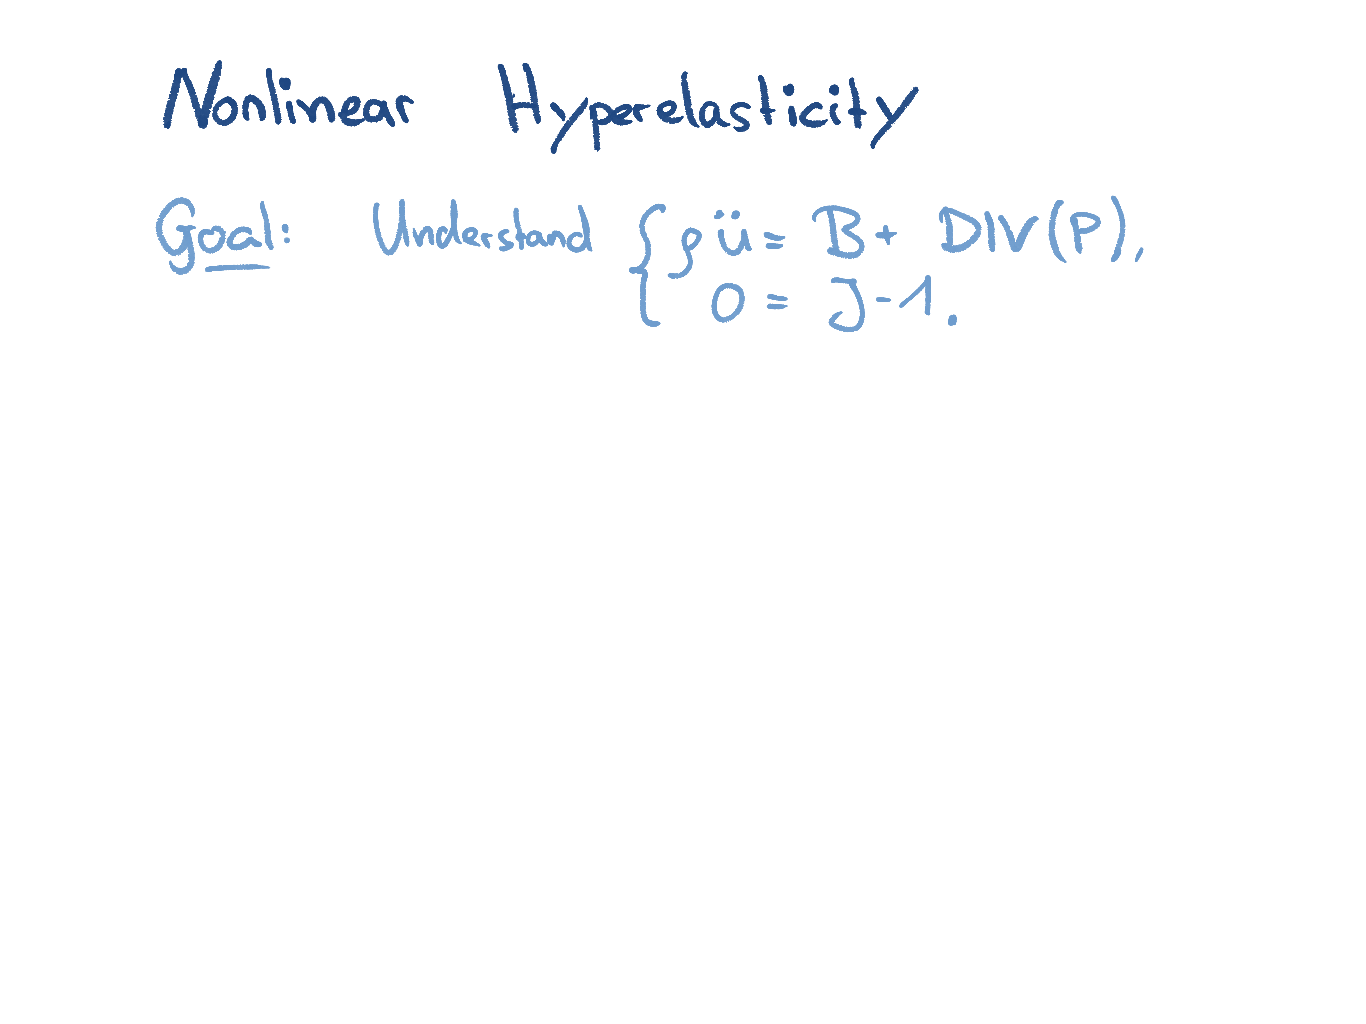 Nonlinear Hyperelasticity
Goal: Understand { ρ ü = B + DIV(P),
0 = J - 1.